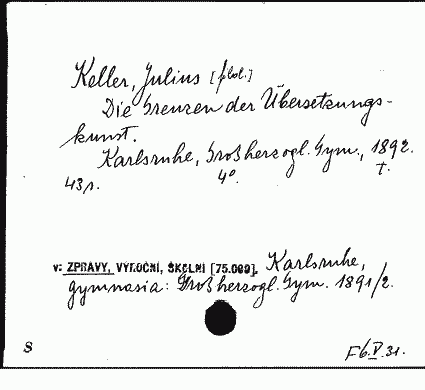 Keller, Julius [phil.]
Die Grenzen der Übersetzungs-
kunst.
Karlsruhe, Großherzogl. Gym., 1892.
43 s. 4º. t.
v: ZPRÁVY, VÝROČNÍ, ŠKOLNÍ [75.069]. Karlsruhe,
gymnasia: Großherzogl. Gym. 1891/2.
S
F6.V.31.